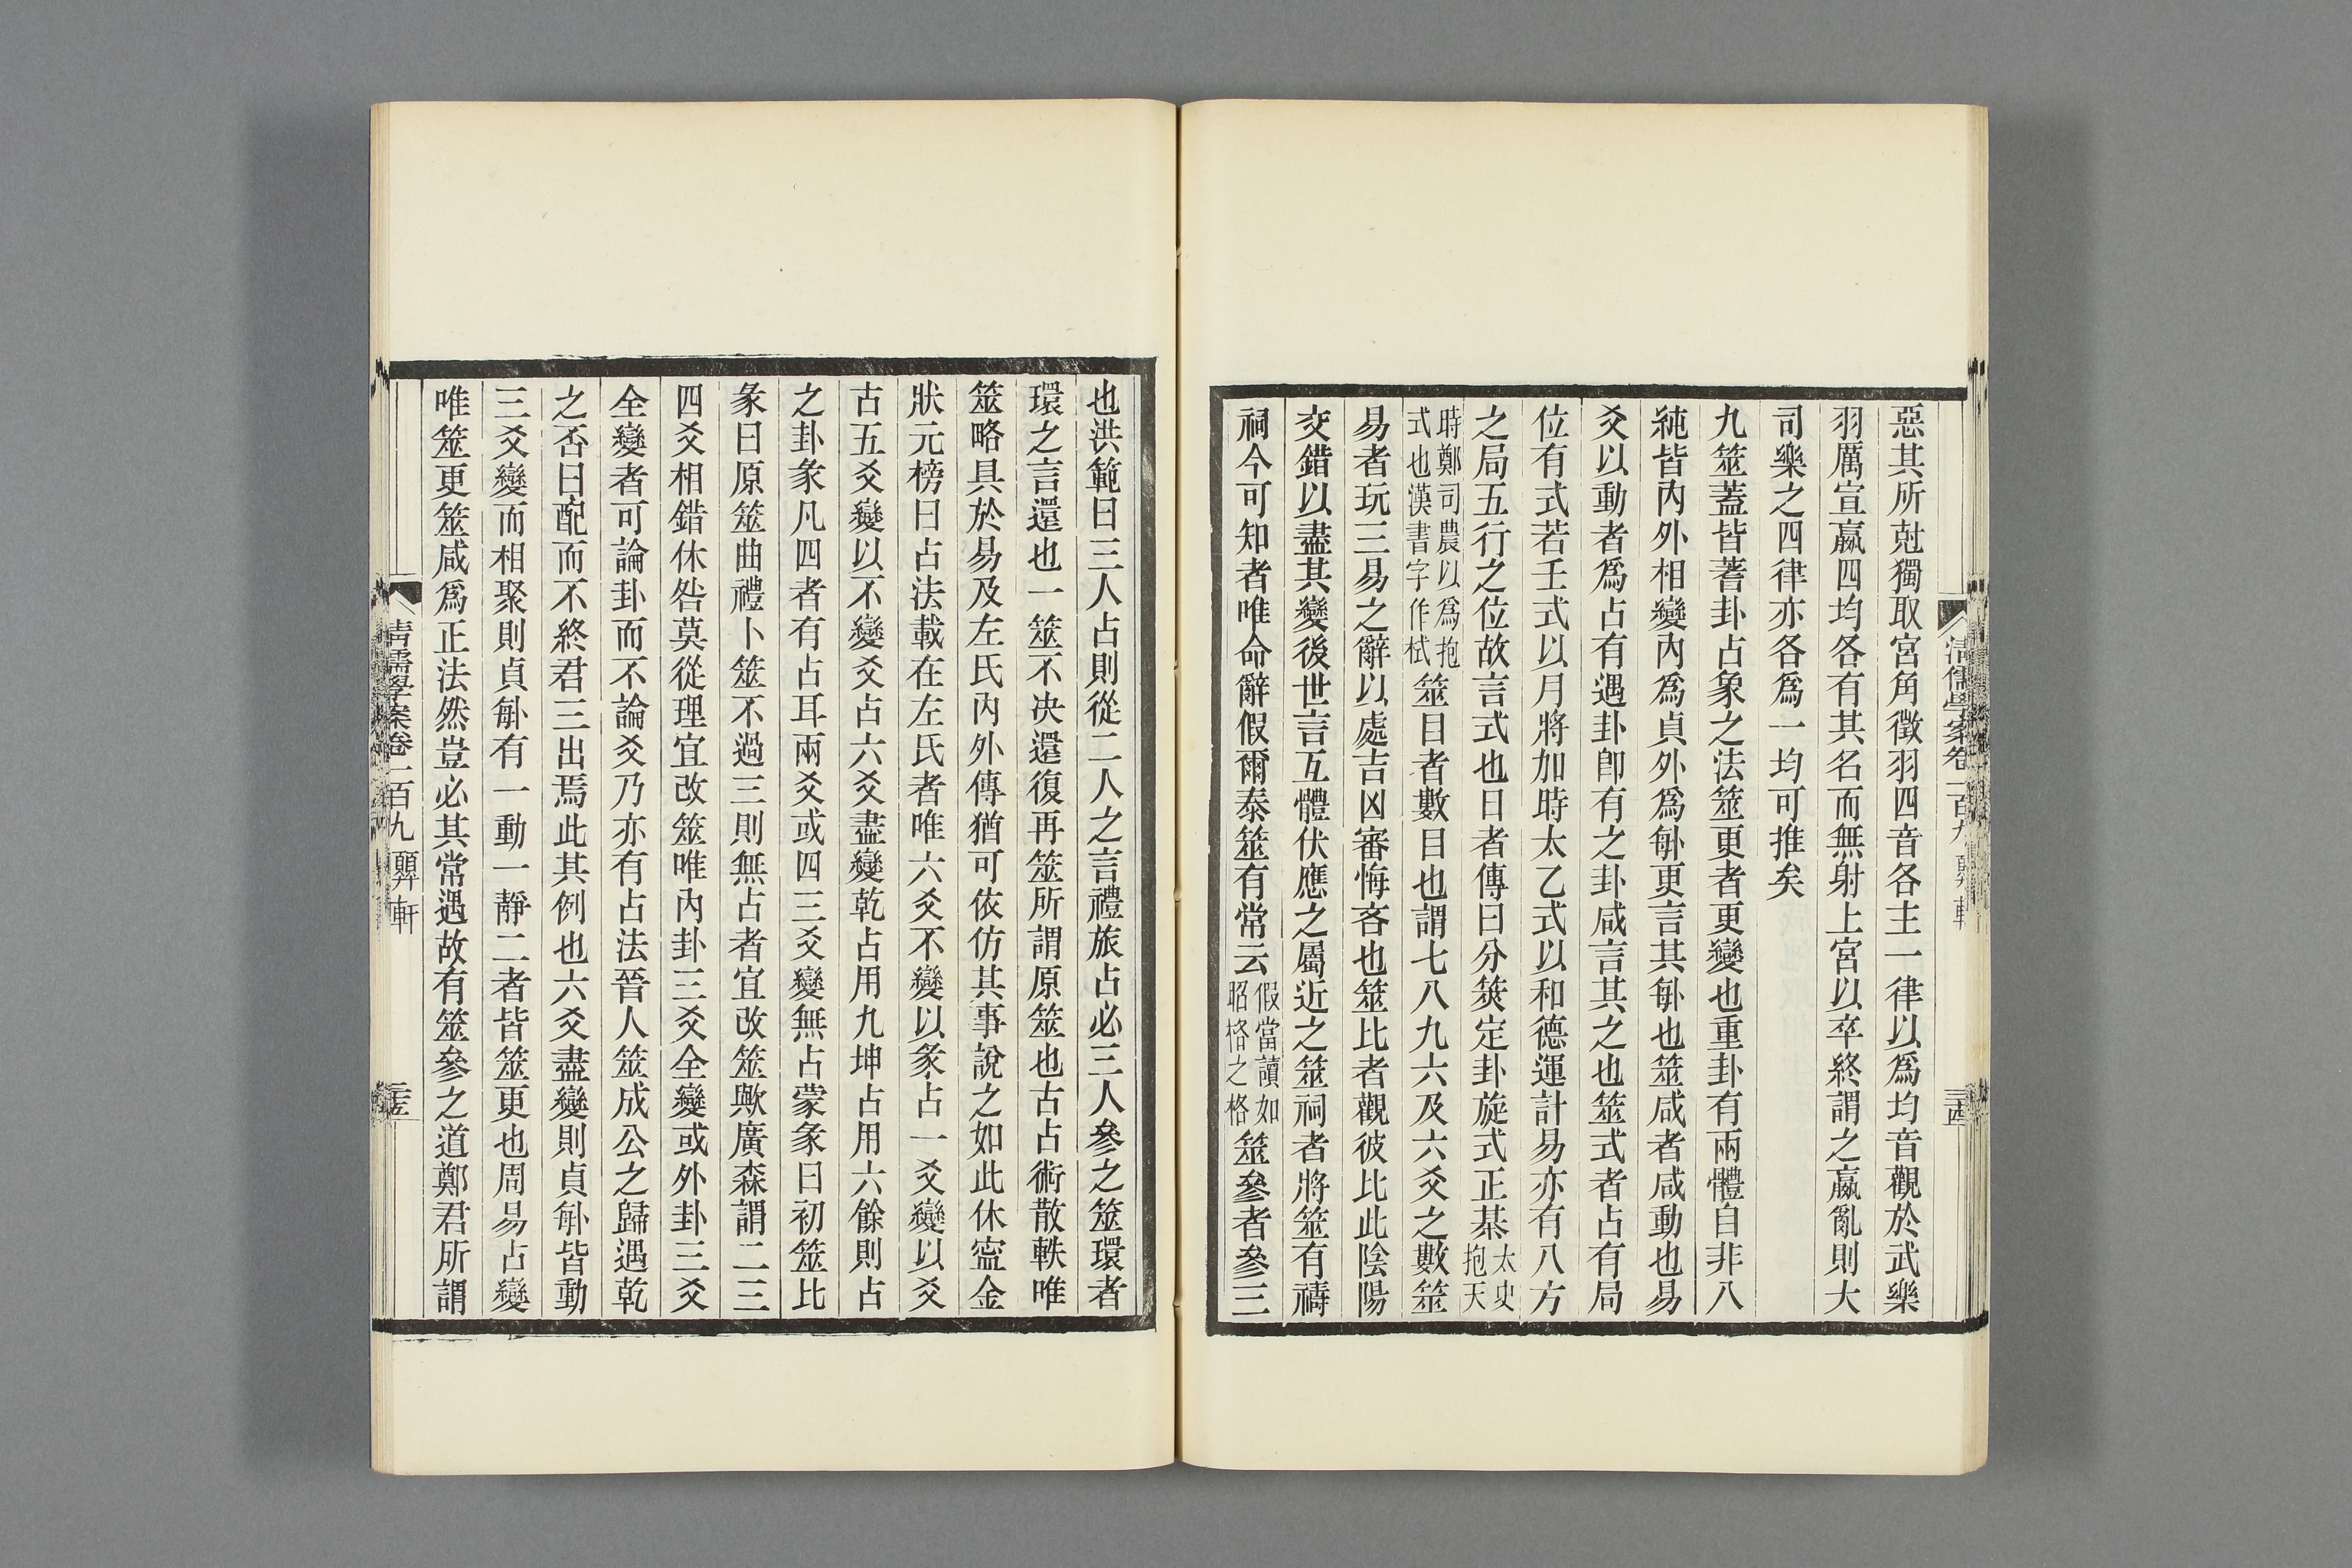 惡其所尅獨取宮角徵羽四音各主一律以爲均音觀於武樂
羽厲宣嬴四均各有其名而無射上宮以卒終謂之嬴亂則大
司樂之四律亦各爲一均可推矣
九筮蓋皆蓍卦占象之法筮更者更變也重卦有兩體自非八
純皆內外相變內爲貞外爲㪚更言其㪚也筮咸者咸動也易
爻以動者爲占有遇卦卽有之卦咸言其之也筮式者占有局
位有式若壬式以月將加時太乙式以和德運計易亦有八方
之局五行之位故言式也日者傳曰分筴定卦旋式正棊太史抱天
時鄭司農以爲抱式也漢書字作栻筮目者數目也謂七八九六及六爻之數筮
易者玩三易之辭以處吉凶審悔吝也筮比者觀彼比此陰陽
交錯以盡其變後世言互體伏應之屬近之筮祠者將筮有禱
祠今可知者唯命辭假爾泰筮有常云假當讀如昭格之格筮參者參三
清儒學案卷一百九 顨軒
三十四
也洪範曰三人占則從二人之言禮旅占必三人參之筮環者
環之言還也一筮不決還復再筮所謂原筮也古占術散軼唯
筮略具於易及左氏內外傳猶可依仿其事說之如此休寍金
狀元榜曰占法載在左氏者唯六爻不變以彖占一爻變以爻
占五爻變以不變爻占六爻盡變乾占用九坤占用六餘則占
之卦彖凡四者有占耳兩爻或四三爻變無占蒙彖曰初筮比
彖曰原筮曲禮卜筮不過三則無占者宜改筮歟廣森謂二三
四爻相錯休咎莫從理宜改筮唯內卦三爻全變或外卦三爻
全變者可論卦而不論爻乃亦有占法晉人筮成公之歸遇乾
之否曰配而不終君三出焉此其例也六爻盡變則貞㪚皆動
三爻變而相聚則貞㪚有一動一靜二者皆筮更也周易占變
唯筮更筮咸爲正法然豈必其常遇故有筮參之道鄭君所謂
清儒學案卷一百九 顨軒
三十五